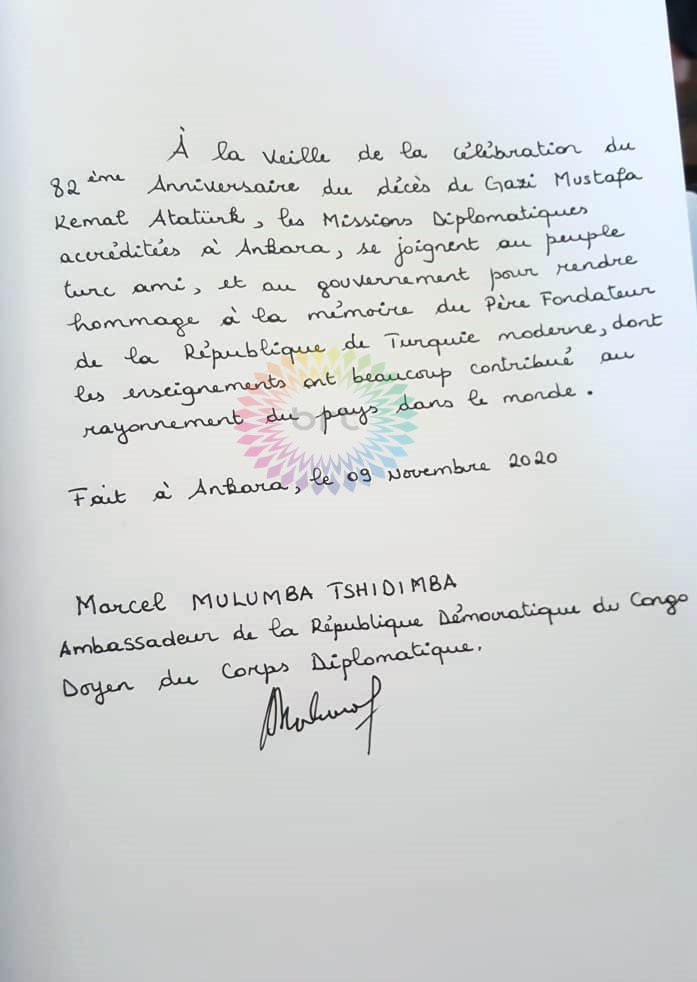 À la veille de la célébration du
82ème Anniversaire du décès de Gazi Mustafa
Kemal Atatürk, les Missions Diplomatiques
accréditées à Ankara, se joignent au peuple
turc ami, et au gouvernement pour rendre
hommage à la mémoire du Père Fondateur
de la République de Turquie moderne, dont
les enseignements ont beaucoup contribué au
rayonnement du pays dans le monde.
Fait à Ankara, le 09 Novembre 2020
Marcel MULUMBA TSHIDIMBA
Ambassadeur de la République Démocratique du Congo
Doyen du Corps Diplomatique.